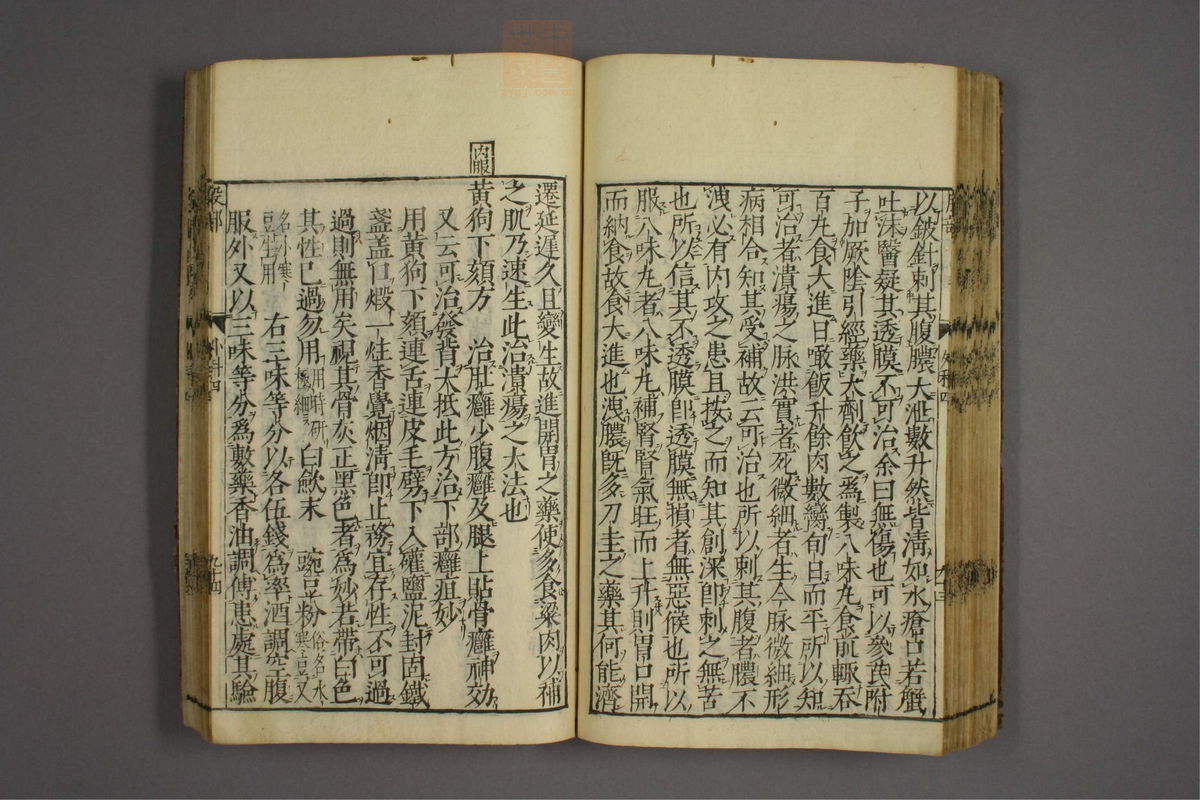 以鈹針刺其腹膿大泄數升然皆清如水瘡口若蟹
吐沫醫疑其透膜不可治余曰無傷也可以參芪附
子加厥陰引經藥大劑飲之爲製八味丸食前輒吞
百丸食大進日噉飯升餘肉數臠旬日而平所以知
可治者潰瘍之脉洪實者死微細者生今脉微細形
病相合知其受補故云可治也所以刺其腹者膿不
洩必有内攻之患且按之而知其創深即刺之無苦
也所以信其不透膜即透膜無損者無惡候也所以
服八味丸者八味丸補腎腎氣旺而上升則胃口開
而納食故食大進也洩膿既多刀圭之藥其何能濟
遷延遲久且變生故進開胃之藥使多食粱肉以補
之肌乃速生此治潰瘍之大法也
内服
黄狗下頦方 治肚癰少腹癰及腿上貼骨癰神効
又云可治發背大抵此方治下部癰疽妙
用黄狗下頦連舌連皮毛劈下入礶鹽泥封固鐵
盞盖口煅一炷香覺烟清即止務宜存性不可過
過則無用矣視其骨灰正黑色者爲妙若帶白色
其性已過勿用用時研極細 白蘞末 豌豆粉俗名水寒豆又
名小寒豆生用 右三味等分以各伍錢爲率酒調空腹
服外又以三味等分爲敷藥香油調傅患處其驗